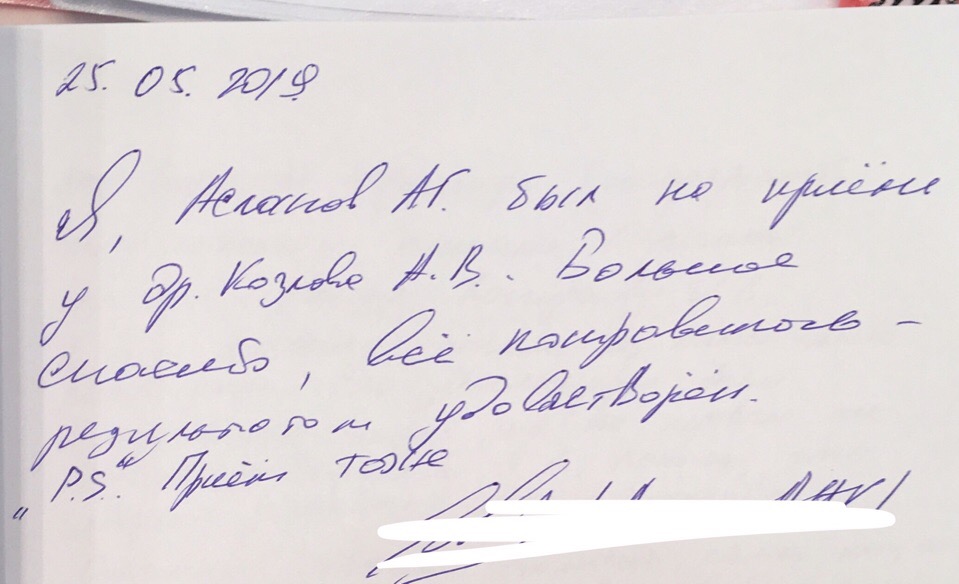 25. 05. 2019
Я, Асланов А.Г. был на приёме
у др. Козлова А.В. Большое
спасибо, всё понравилось -
результатом удовлетворён.
"P.S." Приём тоже